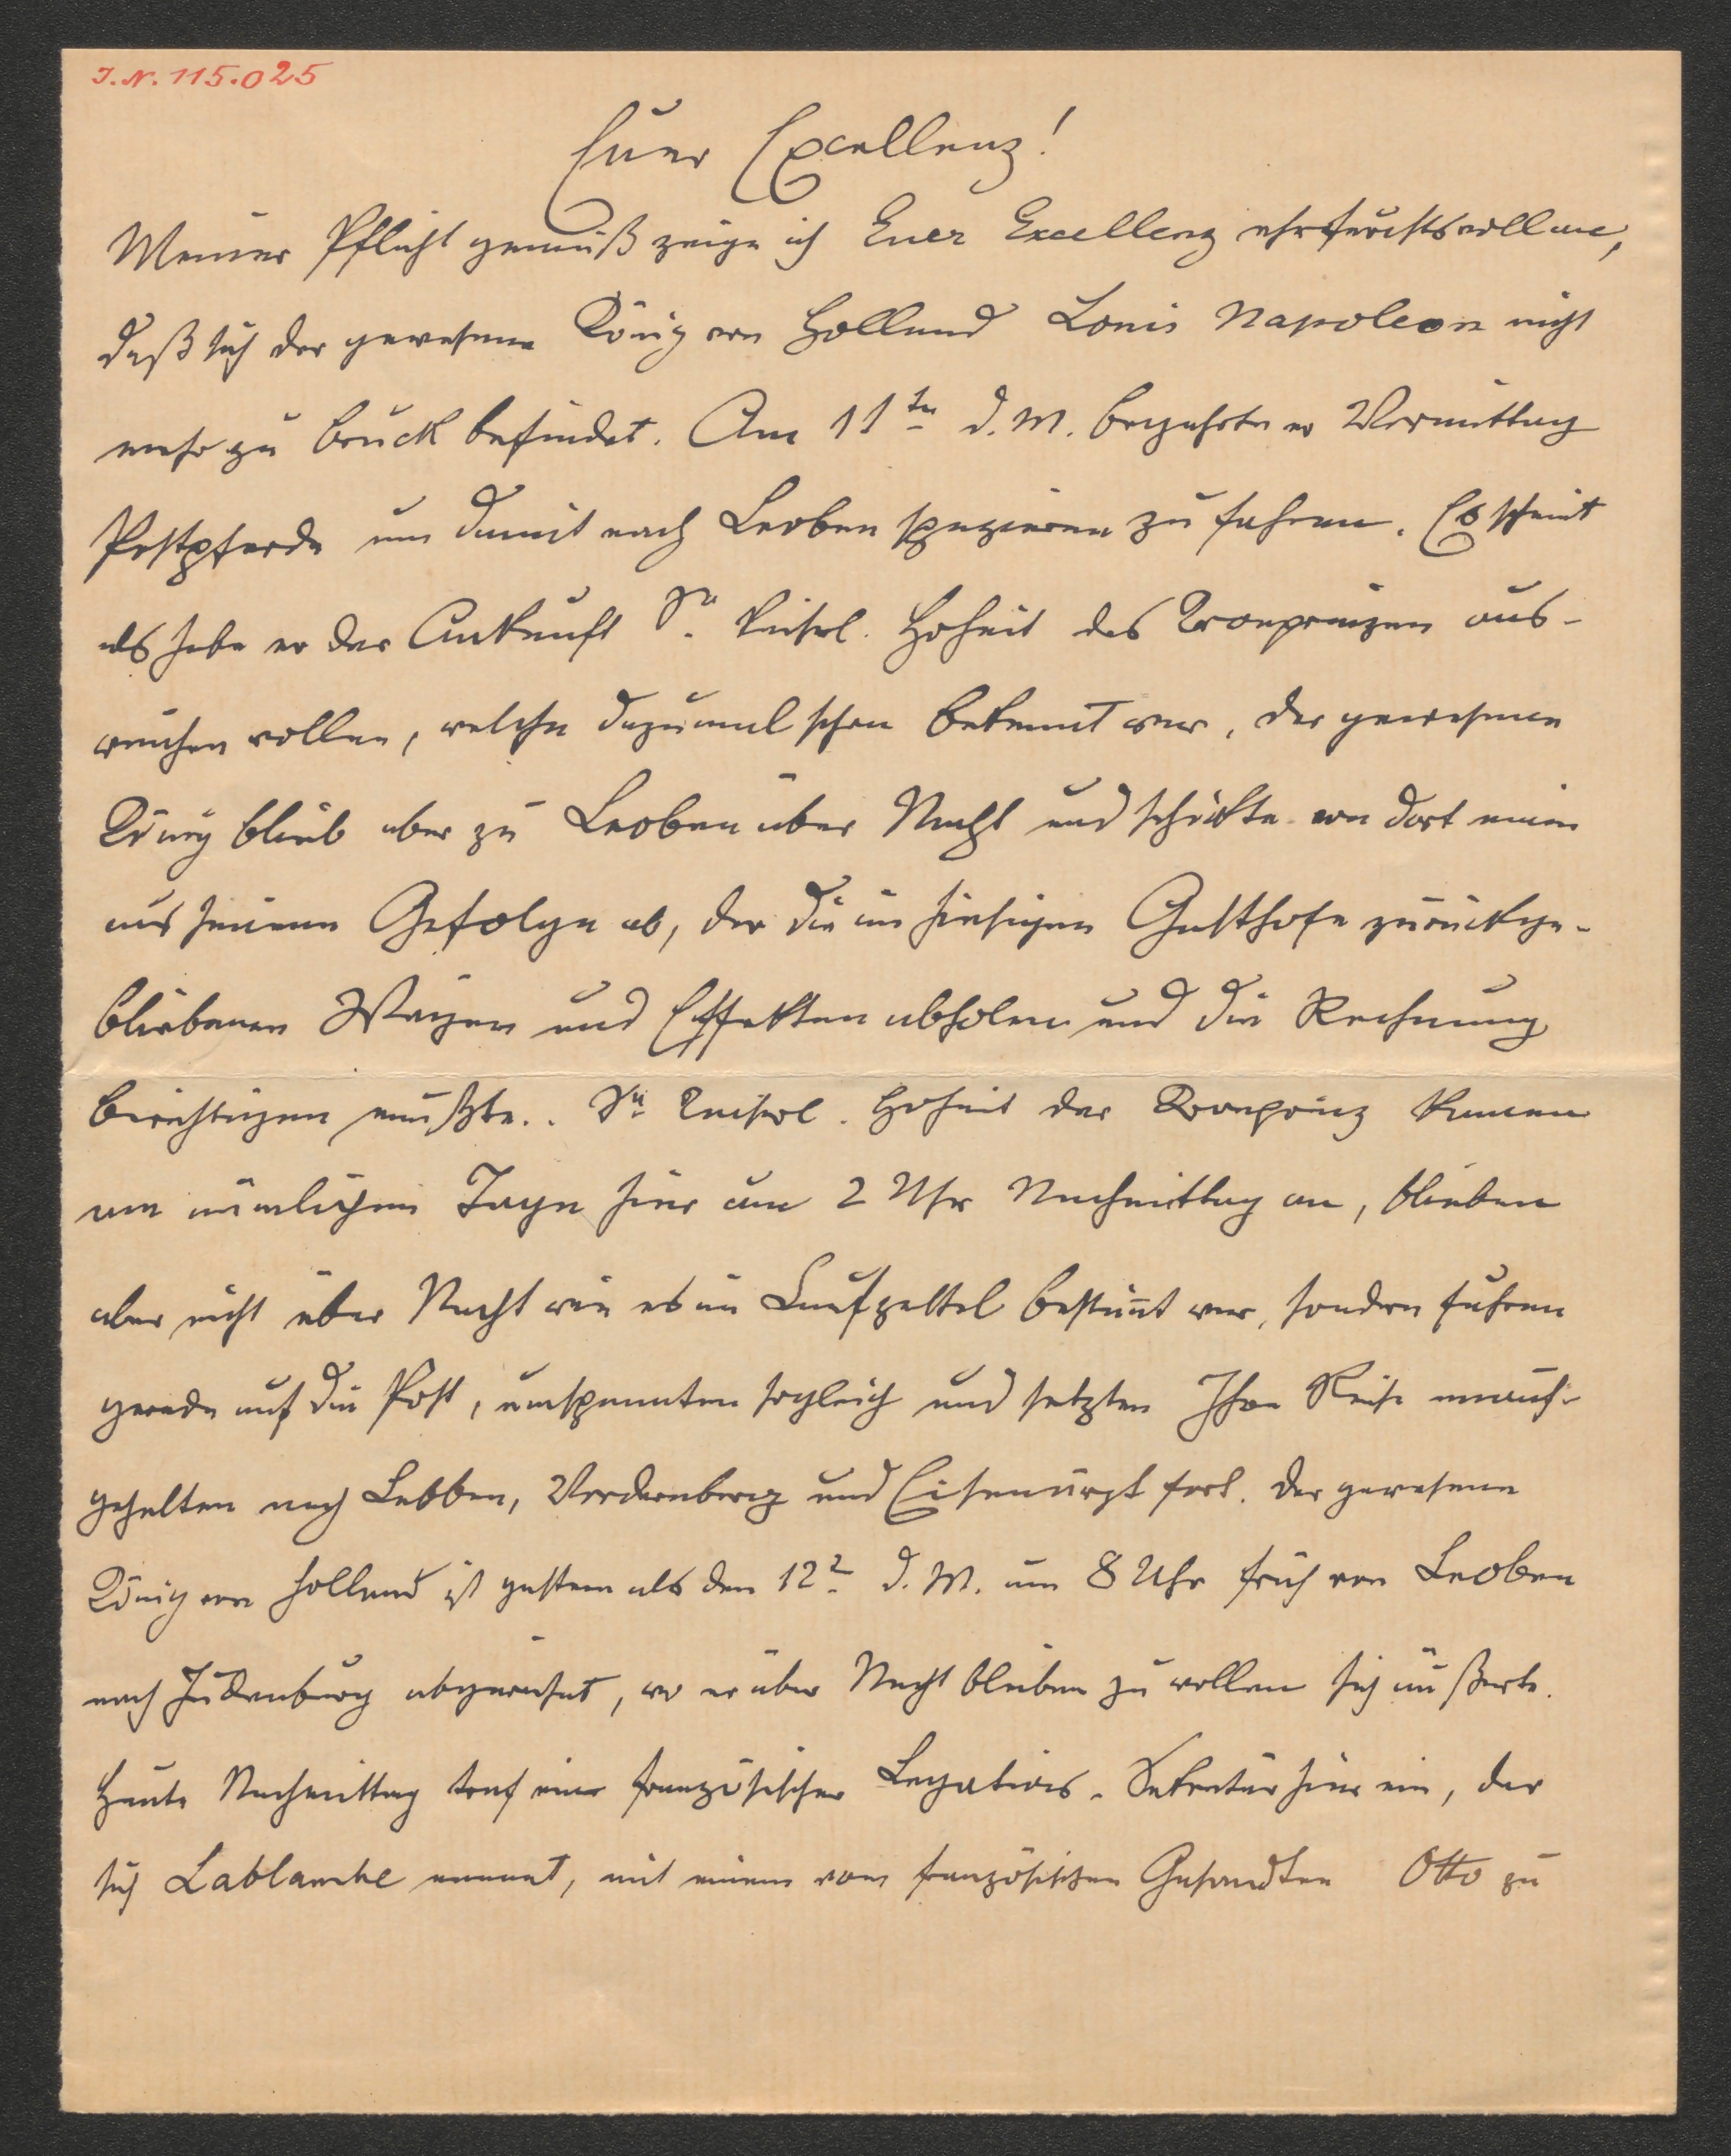 J.N. 115.025
Euer Excellenz!
Meiner Pflicht gemäß zeige ich Euer Excellenz ehrfurchtsvoll an,
daß sich der gewesene König von Holland Louis Napoleon nicht
mehr zu Bruck befindet. Am 11ten d. M. begehrte er Vormittag
Postpferde um damit nach Leoben spazieren zu fahren. Es scheint
als habe er der Ankunft Sr. kaiserl. Hoheit des Kronprinzen aus-
weichen wollen, welche dazumal schon bekannt war, der gewesene
König blieb aber zu Leoben über Nacht und schickte von dort einen
aus seinem Gefolge ab, der die im hiesigen Gasthofe zurückge-
bliebenen Wägen und Effekten abholen und die Rechnung
berichtigen mußte.. Se. Kaiserl. Hoheit der Kronprinz kamen
am nämlichen Tage hier um 2 Uhr Nachmittag an, blieben
aber nicht über Nacht wie es im Laufzettel bestimt war, sondern fuhren
gerade auf die Post, umspannten sogleich und setzten Ihre Reise unauf-
gehalten nach Lebben, Vordernberg und Eisenärzt fort. der gewesene
König von Holland ist gestern als den 12t d. M. um 8 Uhr früh von Leoben
nach Judenburg abgereiset, wo er über Nacht bleiben zu wollen sich äußerte.
Heute Nachmittag traf ein französischer Legations-Sekretär hier ein, der
sich Lablanche nennt, mit einem vom französischen Gesandten Otto zu